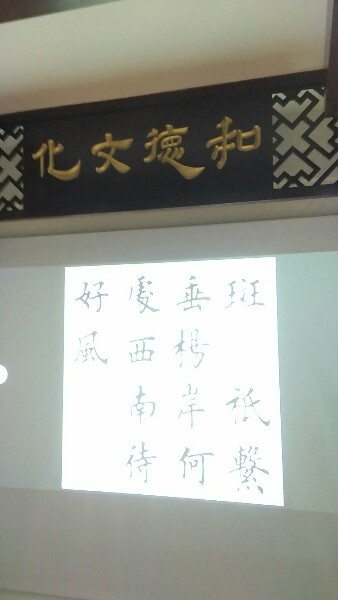 和德文化
斑 祇繫
垂楊岸何
處西南待
好風